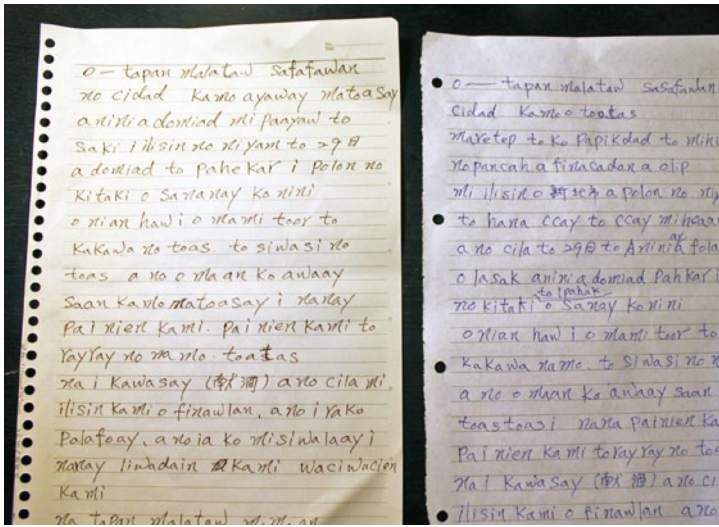 o — tapan malataw safafawan
no cidad kamo ayaway matoasay
aninia domiad mi paayaw to
saki ilisin no niyam to 29日
a domiad to pahekar i polon no
kitaki o sananay ko nini
o nian haw i o mami toor to
kakawa no toas to siwasi no
toas a no o maan ko awaay
saan kamo matoasay i nanay
pai nien kami. pai nien kami to
rayray no namo toatas
na i kawasay (獻酒) a no cila mi
ilisin kami o finawlan, a no i rako
palafoay, a no ia ko misiwalaay i
nanay liwadain kami waciwacien
kami
na tapan malataw
o — tapan malataw sasafawan
cidad kamo o toatas
maretep to ko papikdad to mihc
no pancah a finacadan a olip
mi ilisin o 新北市 a polon no niy
to hana ccay to ccay mihcaan
a no cila to 29日 to Aninia ay fola
o lasak aninia domiad pahkar i
no kitaki to ipahak o sanay ko nini
o nian haw i o mami toor to
kakawa namo to siwasi no n
a no o maan ko awaay saan
toastoas i nana painien ka
pai nien kami to rayray no toa
na i kawasay (獻酒) a no ci
ilisin kami o finawlan a no